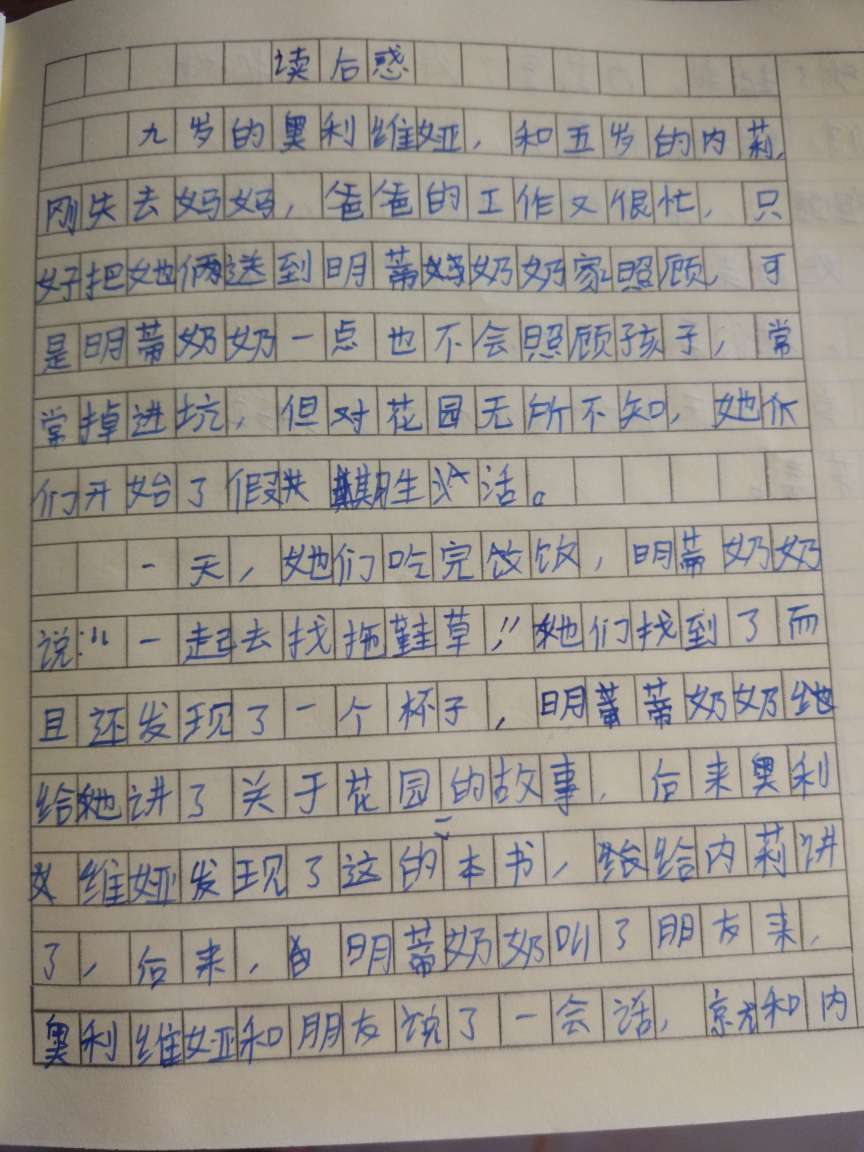 读后感
九岁的奥利维娅，和五岁的内莉，
刚失去妈妈，爸爸的工作又很忙，只
好把她俩送到明蒂奶奶家照顾，可
是明蒂奶奶一点也不会照顾孩子，常
常掉进坑，但对花园无所不知，她
们开始了假期生活。
一天，她们吃完饭，明蒂奶奶
说："一起去找拖鞋草！"她们找到了而
且还发现了一个杯子，明蒂奶奶
给她讲了关于花园的故事，后来奥利
维娅发现了这的本书，给内莉讲
了，后来，明蒂奶奶叫了朋友来，
奥利维娅和朋友说了一会话，就和内